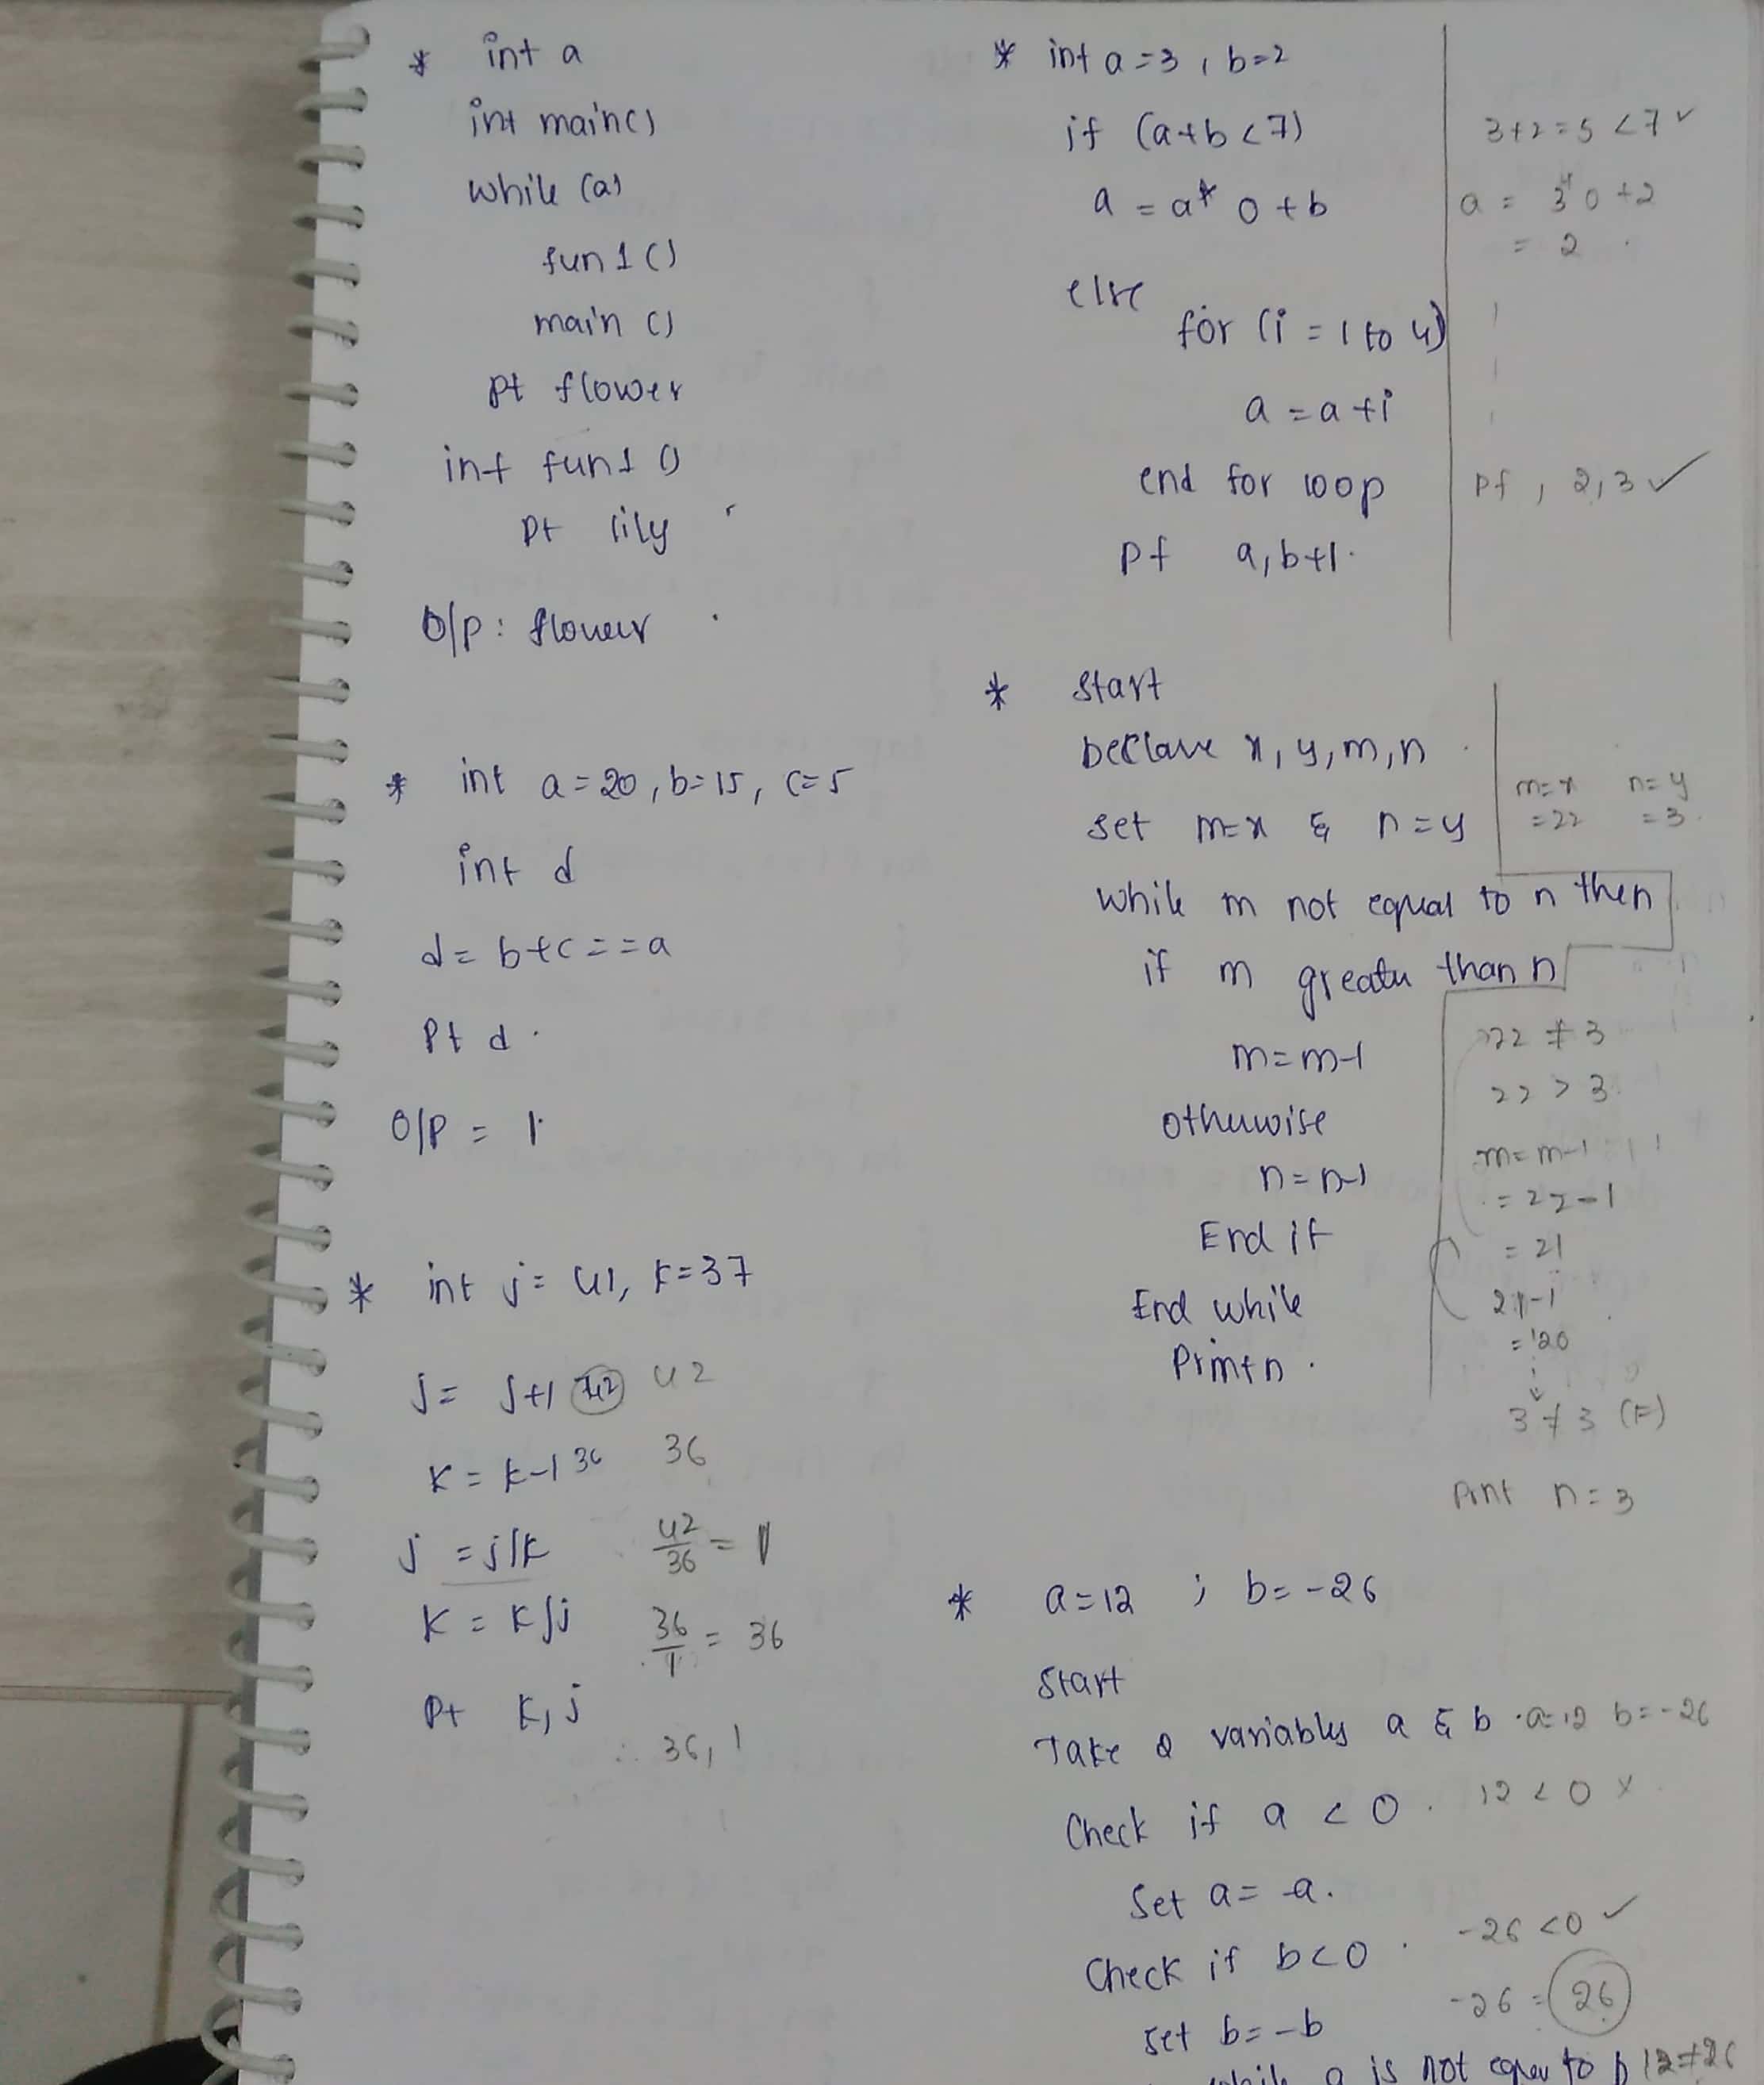 * int a
int main()
while (a)
fun1()
main()
pt flower
int fun1()
pt lily
O/p: flower
* int a=20, b=15, c=5
int d
d= b+c==a
Pt d.
O/P = 1.
* int j= 41, k=37
j= j+1 42 42
k= k-1 36 36
j =j/k 42/36 = 1
k = k/j 36/1 = 36
Pt k, j
∴ 36, 1
* int a=3, b=2
if (a+b<7) 3+2=5 <7 ✓
a = a* 0 +b a = 3*0+2
= 2
else
for (i = 1 to 4)
a = a+i
end for loop pf, 2,3 ✓
Pf a, b+1.
* start
Declare x, y, m, n
set m=x & n=y m=x n=y
=22 =3.
while m not equal to n then
if m greater than n
22 ≠ 3
m=m-1
22 > 3
otherwise m=m-1
n=n-1 = 22-1
End if = 21
End while 21-1
= 20
Print n.
3≠3 (F)
Print n=3
* a=12 ; b=-26
Start
Take 2 variables a & b . a=12 b=-26
Check if a < 0. 12 < 0 x
Set a= -a.
Check if b<0. -26 <0 ✓
set b= -b -26 = 26
while a is not equal to b 12≠26